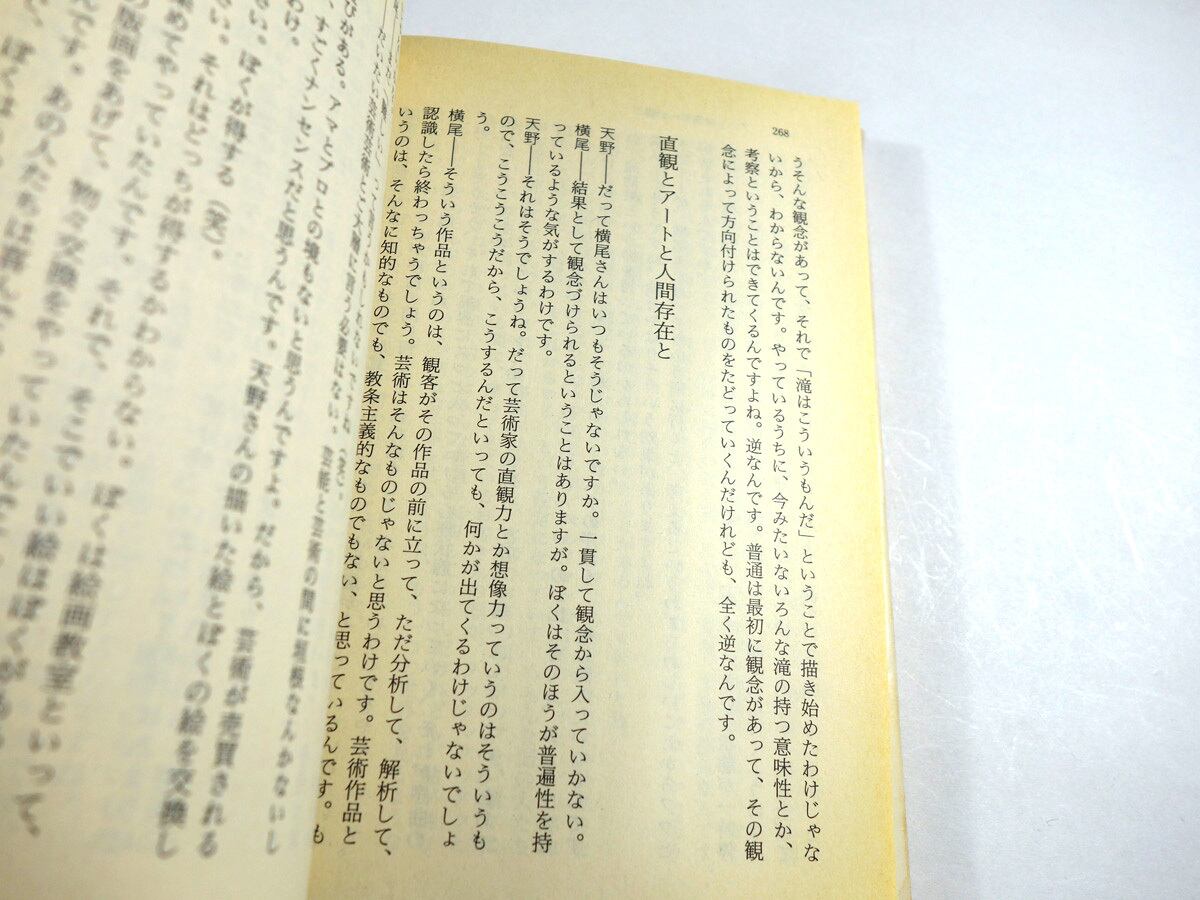 268
うそんな観念があって、それで「滝はこういうもんだ」ということで描き始めたわけじゃな
いから、わからないんです。やっているうちに、今みたいないろんな滝の持つ意味性とか、
考察ということはできてくるんですよね。逆なんです。普通は最初に観念があって、その観
念によって方向付けられたものをたどっていくんだけれども、全く逆なんです。
直観とアートと人間存在と
天野――だって横尾さんはいつもそうじゃないですか。一貫して観念から入っていかない。
横尾――結果として観念づけられるということはありますが。ぼくはそのほうが普遍性を持
っているような気がするわけです。
天野――それはそうでしょうね。だって芸術家の直観力とか想像力っていうのはそういうも
ので、こうこうこうだから、こうするんだといっても、何かが出てくるわけじゃないでしょ
う。
横尾――そういう作品というのは、観客がその作品の前に立って、ただ分析して、解析して、
認識したら終わっちゃうでしょう。芸術はそんなものじゃないと思うわけです。芸術作品と
いうのは、そんなに知的なものでも、教条主義的なものでもない、と思っているんです。も
芸能と芸術の間に垣根なんかないし
びがある。アマとプロとの境もないと思うんですよ。だから、芸術が売買される
、すごくナンセンスだと思うんです。天野さんの描いた絵とぼくの絵を交換し
わけ。
さい。ぼくが得する（笑）。
さい。それはどっちが得するかわからない。ぼくは絵画教室といって、
集めてやっていたんです。それで、そこでいい絵はぼくが
の版画をあげて、物々交換をやっていたんです
んです。あの人たちは喜んで